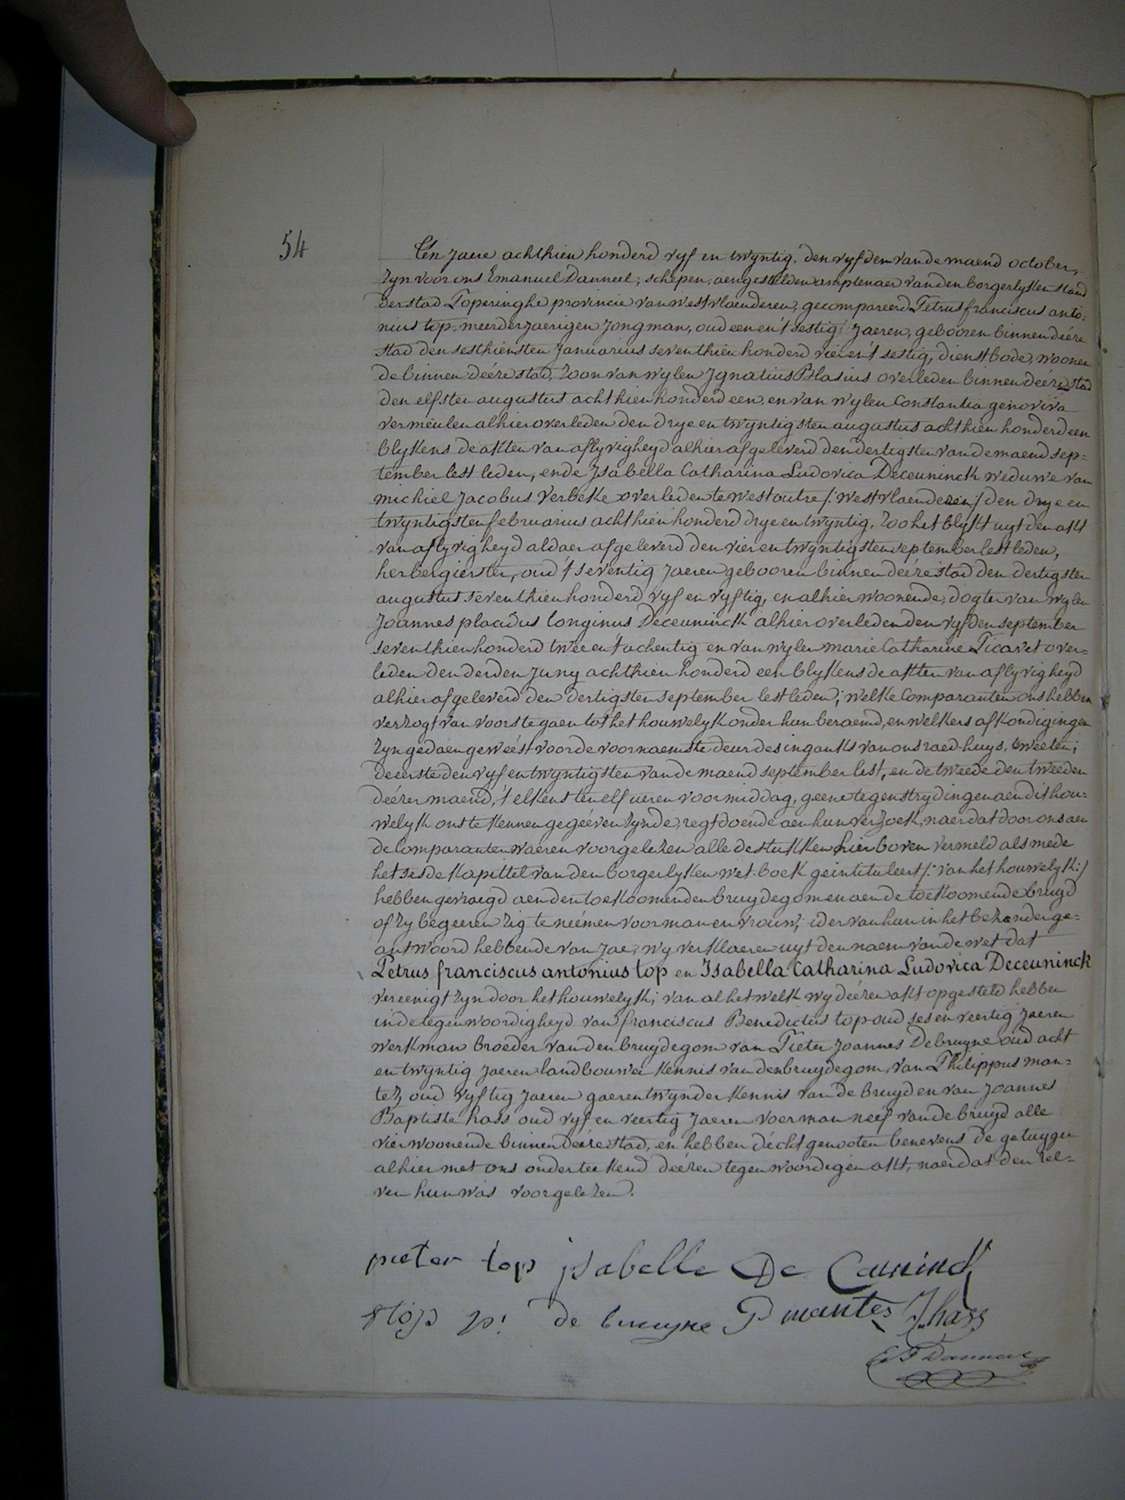 54
Ten jaere achthien honderd vyf en twyntig, den vyfden van de maend october,
zyn voor ons Emanuel Danneel, schepen, aengestelden amptenaer van den borgerlyken stand
der stad Poperinghe provincie van westvlaenderen, gecompareerd Petrus franciscus anto-
nius top, meerderjaerigen jongman, oud een en 't sestig jaeren, gebooren binnen deéze
stad den sesthiensten januarius seventhien honderd vier en 't sestig, dienstbode, woonen-
de binnen deéze stad, zoon van wylen Ignatius Blasius overleden binnen deéze stad
den elfsten augustus achthien honderd een, en van wylen Constantia genoviva
vermeulen alhier overleden den drye en twyntigsten augustus achthien honderd een
blykens de akten van aflyvigheyd alhier afgeleverd den dertigsten van de maend sep-
tember lest leden, ende Isabella Catharina Ludovica Deceuninck weduwe van
michiel Jacobus Verbeke overleden te westoutre /: westvlaenderen :/ den drye en
twyntigsten februarius achthien honderd drye en twyntig, zoo het blykt uyt den akt
van aflyvigheyd aldaer afgeleverd den vier en twyntigsten september lest leden,
herbergierster, oud 't seventig jaeren gebooren binnen deéze stad den dertigsten
augustus seventhien honderd vyf en vyftig, en alhier woonende, dogter van wylen
Joannes placidus Longinus Deceuninck alhier overleden den vyfden september
seventhien honderd twee en 't achentig en van wylen marie Catharine Ticaret over-
leden den derden juny achthien honderd een blykens de akten van aflyvigheyd
alhier afgeleverd den dertigsten september lest leden; welke Comparanten ons hebben
verzogt van voorts te gaen tot het houwelyk onder hun beraemd, en welkers afkondigingen
zyn gedaen geweést voor de voornaemste deur des ingank's van ons raed-huys, te weeten;
de eerste den vyf en twyntigsten van de maend september lest, en de tweede den tweeden
deézer maend, 't elkens ten elf ueren voormiddag, geene tegenstrydingen aen dit hou-
welyk ons te kennen gegeéven zynde, regt doende aen hun verzoek, naer dat door ons aen
de Comparanten waeren voorgelezen alle de stukken hier boven vermeld als mede
het sesde kapittel van den borgerlyken wet-boek geintituleert /: van het houwelyk :/
hebben gevraegd aen den toekoomenden bruydegom en aen de toekoomende bruyd
of zy begeeren zig te neémen voor man en vrouw; ider van hun in het bezonder ge-
antwoord hebbende van jae; wy verklaeren uyt den naem van de wet dat
Petrus franciscus antonius top en Isabella Catharina Ludovica Deceuninck
vereenigt zyn door het houwelyk; van al het welk wy deézen akt opgesteld hebben
in de tegenwoordigheyd van franciscus Benedictus top oud ses en veertig jaeren
werkman broeder van den bruydegom van Pieter Joannes Debruyne oud acht
en twyntig jaeren landbouwer kennis van den bruydegom, van Philippus man-
tez, oud vyftig jaeren gaerentwynder kennis van de bruyd en van Joannes
Baptiste hass oud vyf en veertig jaeren voerman neef van de bruyd alle
vier woonende binnen deéze stad, en hebben d'echtgenooten benevens de getuygen
alhier met ons onderteekend deézen tegenwoordigen akt, naer dat den zel-
ven hun was voorgelezen.
pieter top isabelle De Ceuninck
f top p: de bruyne P mantes J hass
E F Danneel